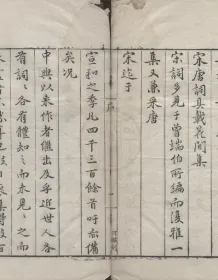 宋唐詞具載花間集
宋詞多見于曾端伯所編而復雅一
集又兼采唐
宋迄于
宣和之季凡四千三百餘首吁亦備
矣况
中興以來作者繼出及乎近世人各
有詞詞各有體知之而未見見之而